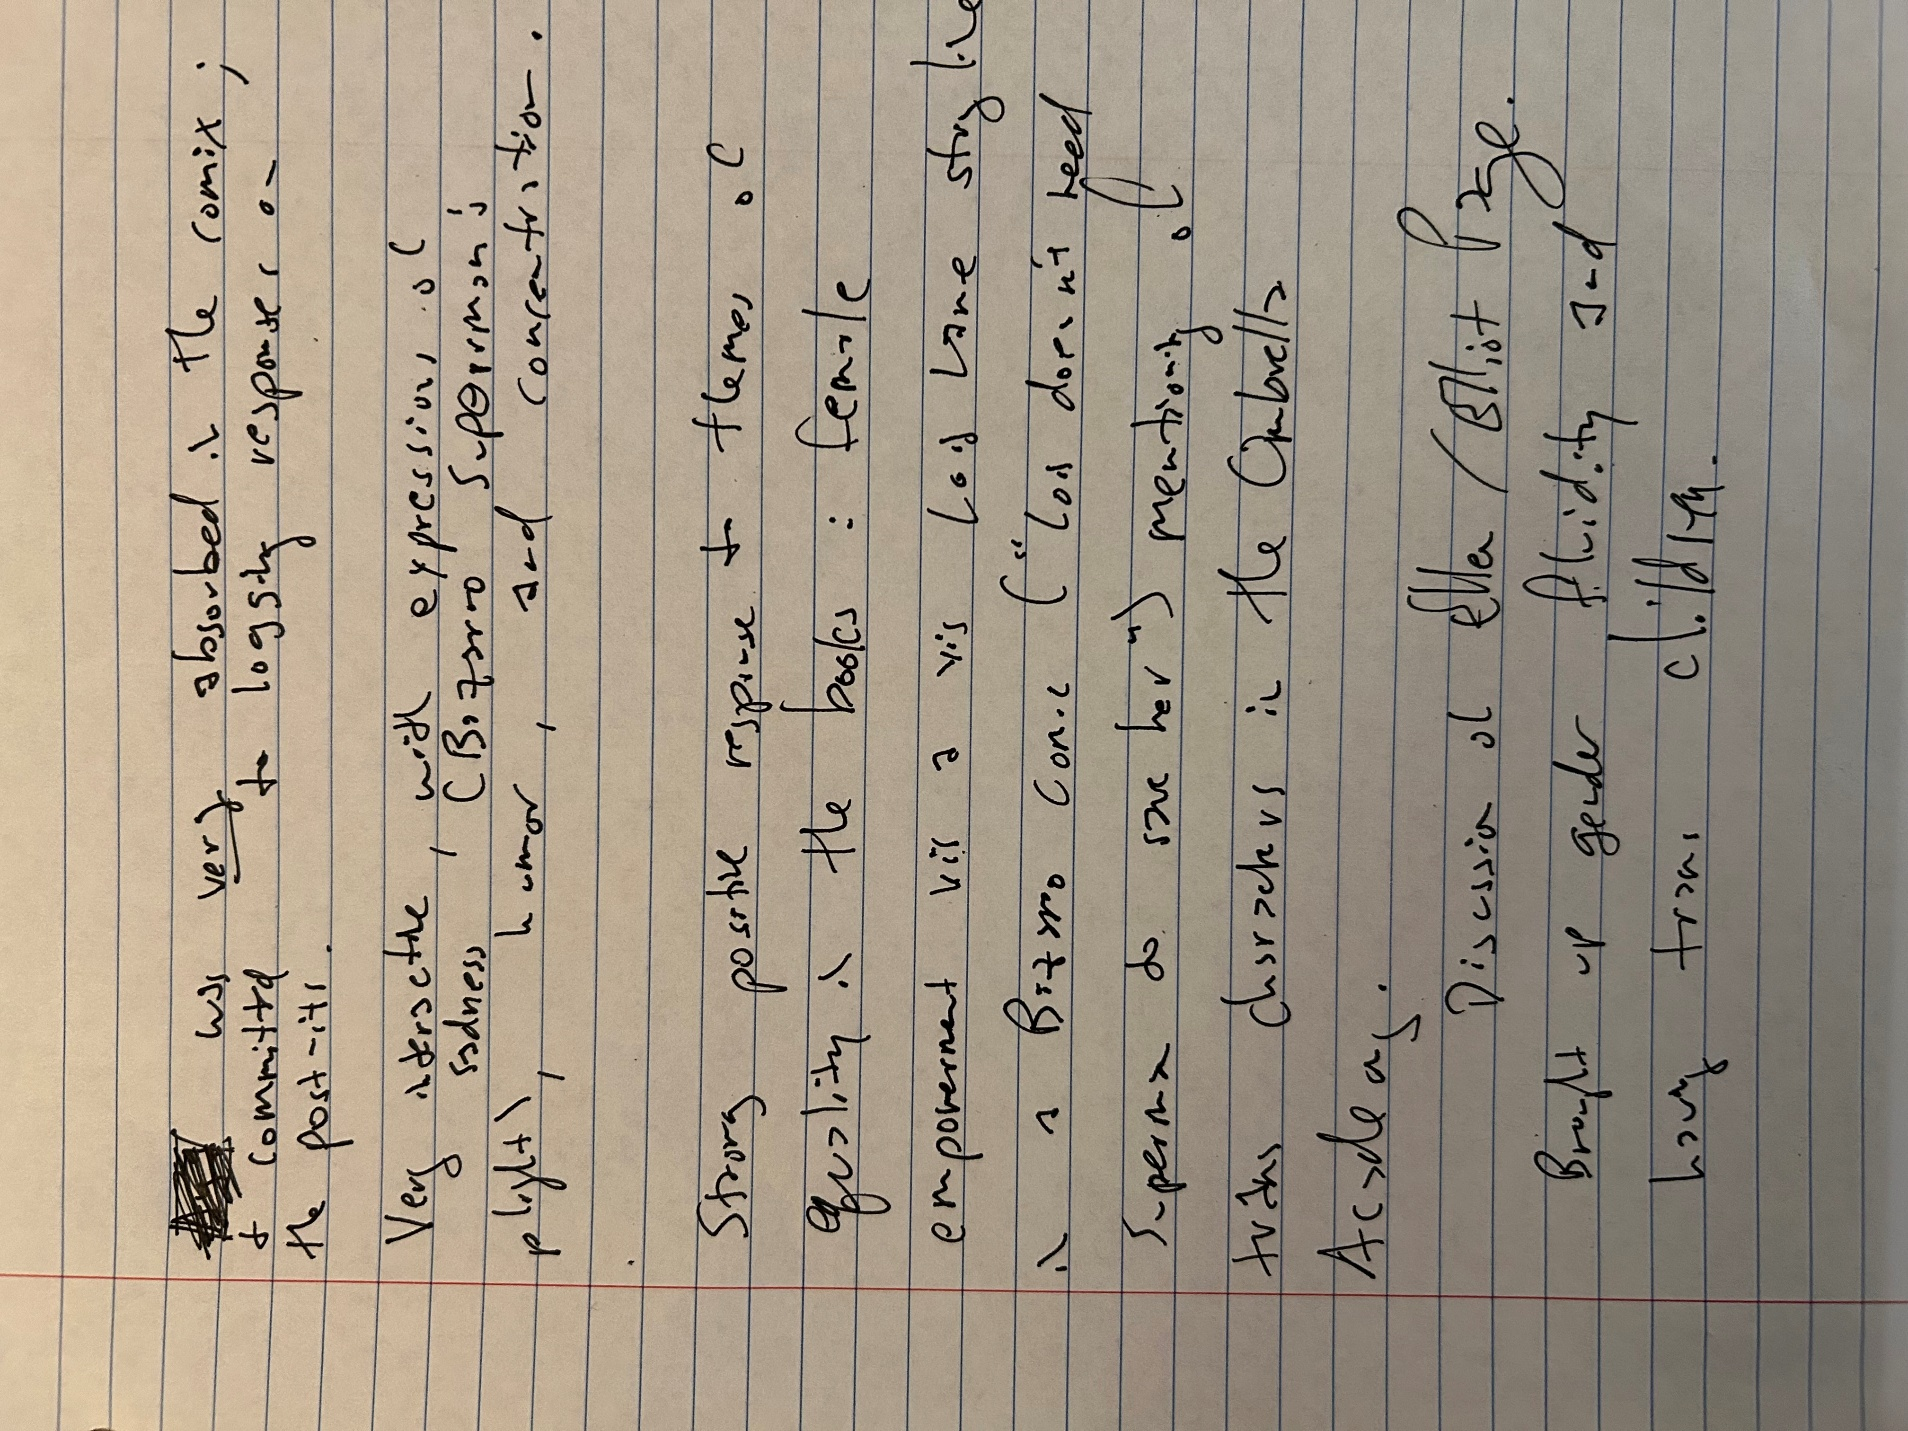 was very absorbed in the comix;
+ committed to logging responses on
the post-its.
Very interactive, with expressions of
sadness (Bizarro Superman's
plight), humor, and concentration.
Strong positive response to themes of
equality in the books: female
empowerment vis a vis Lois Lane story line
in a Bizarro Comic ("Lois doesn't need
Superman to save her") mentioning of
trans characters in the Umbrella
Academy.
Discussion of Ellen / Elliot Page.
Brought up gender fluidity and
having trans children.